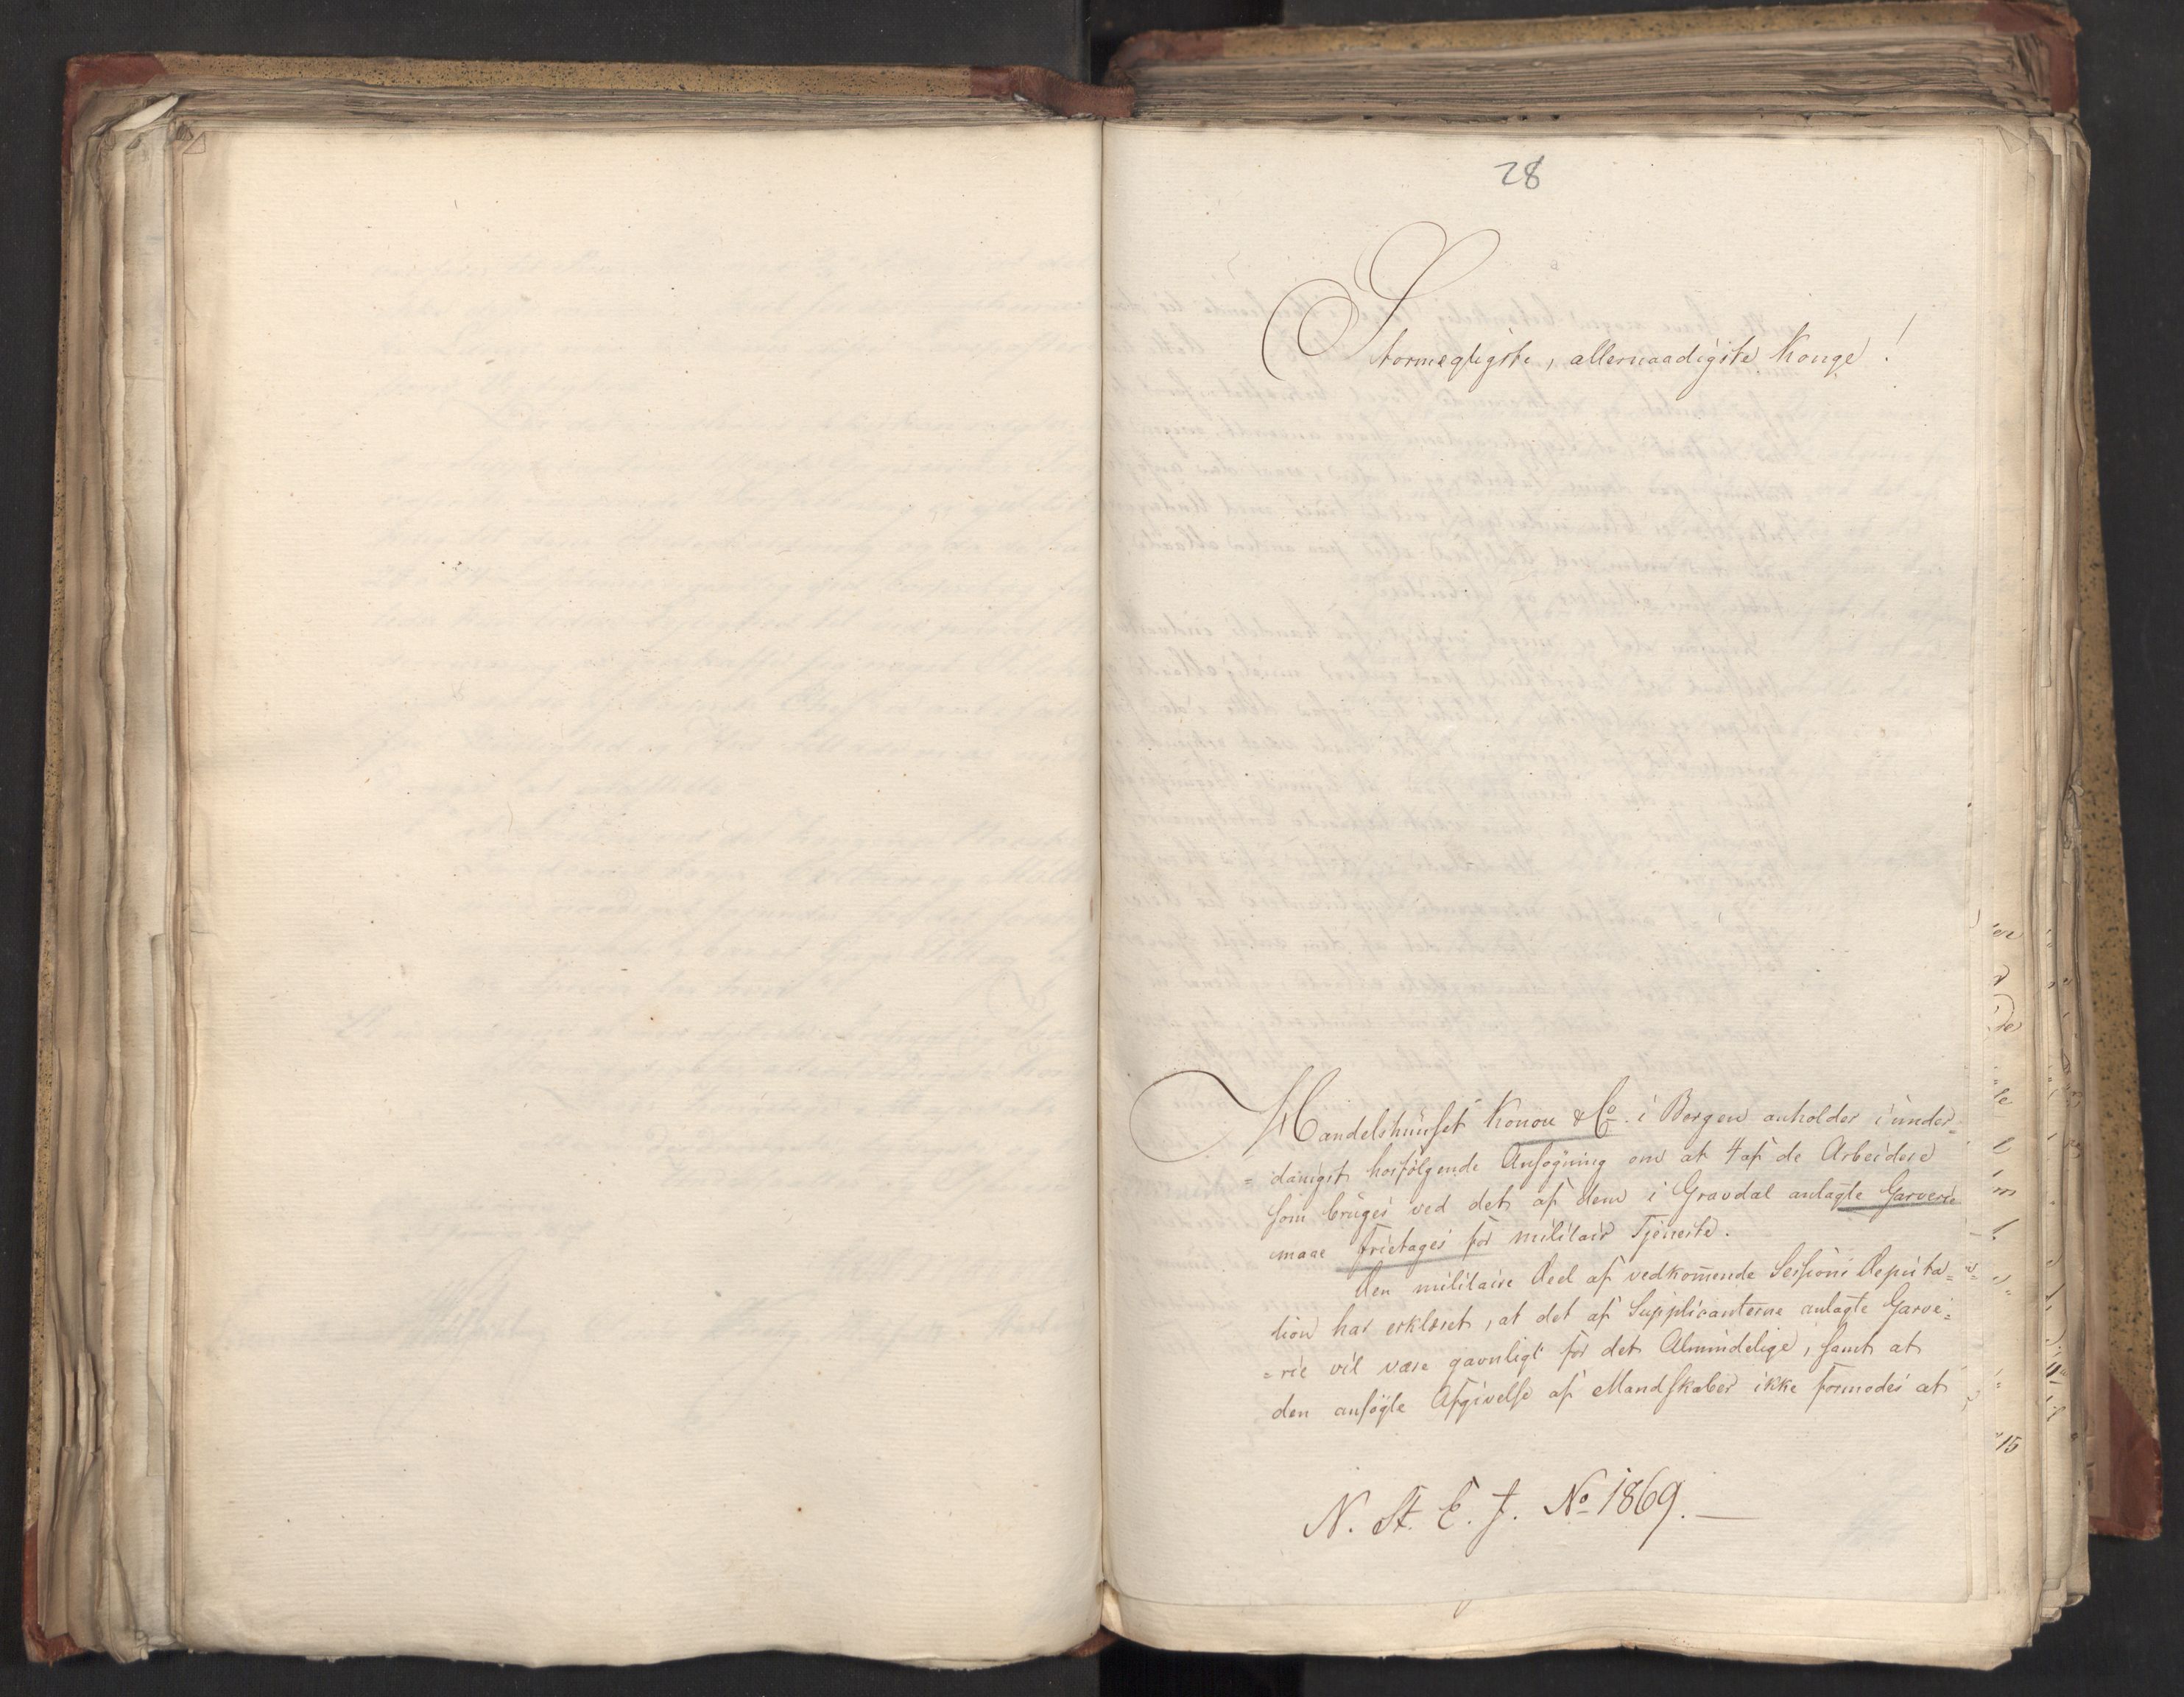 28
Stormægtigste, allernaadigste Konge!
Handelshuuset Konow & Co. i Bergen anholder i under=
=danigst hosfølgende Ansøgning om at 4 af de Arbeidere
som bruges ved det af dem i Gravdal anlagte Garverie
maae fritages for militair Tjeneste.
Den militaire Deel af vedkommende Sessions Deputa=
tion har erklæret, at det af Supplicanterne anlagte Garve=
=rie vil være gavnligt for det Almindelige, samt at
den ansøgte Afgivelse af Mandskaber ikke formodes at
N. St. E. J. No 1869.